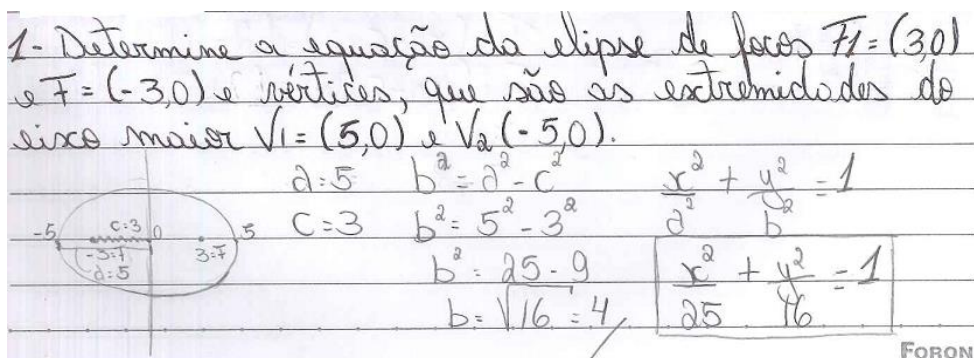 1- Determine a equação da elipse de focos F1=(3,0)
e F=(-3,0) e vértices, que são as extremidades do
eixo maior V1=(5,0) e V2(-5,0).
a=5 b²=a²-c² x²/a² + y²/b² = 1
c=3 b²= 5² - 3²
b²= 25 - 9 x²/25 + y²/16 = 1
b= √16 = 4
-5 c=3 0 5
-3=F 3=F
a=5
FORON